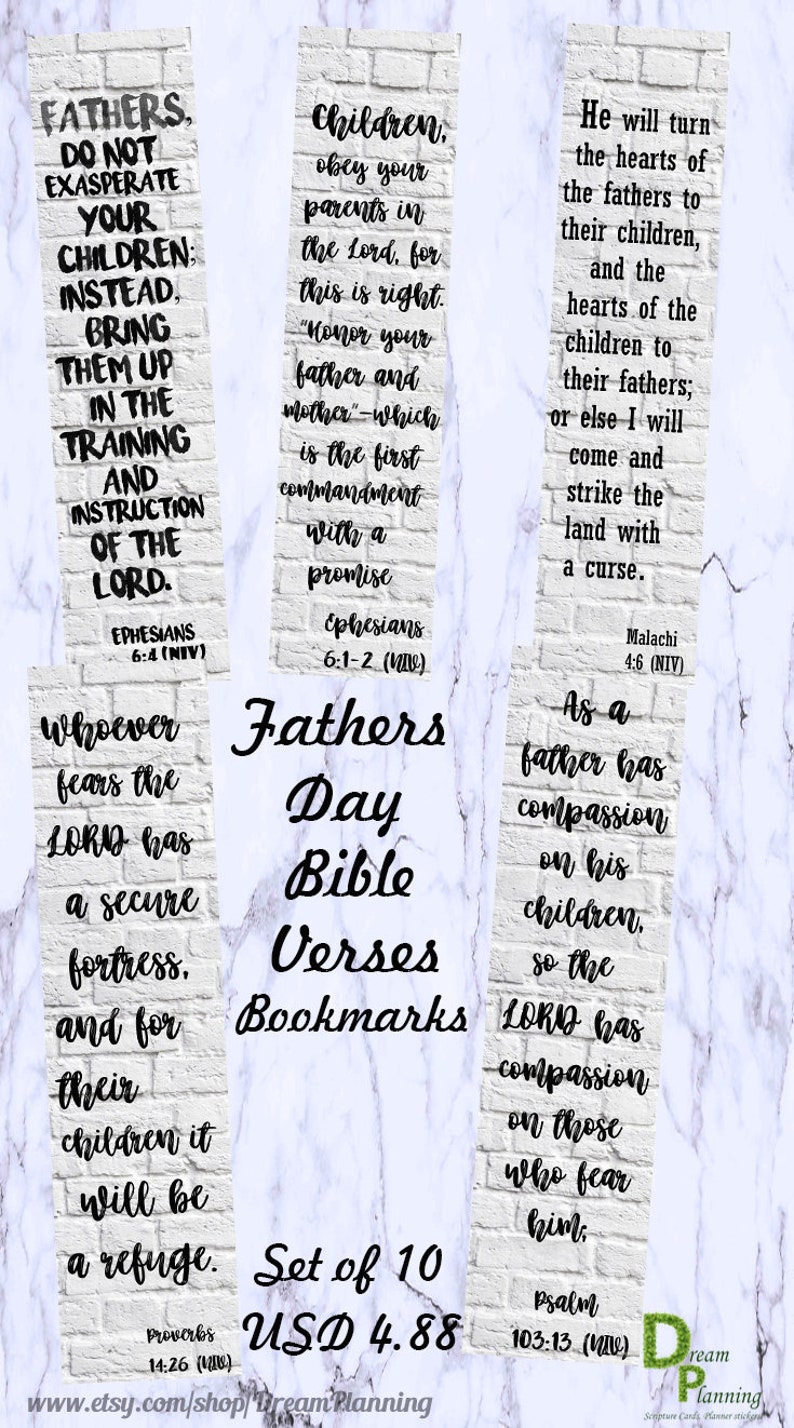 FATHERS,
DO NOT
EXASPERATE
YOUR
CHILDREN;
INSTEAD,
BRING
THEM UP
IN THE
TRAINING
AND
INSTRUCTION
OF THE
LORD.
EPHESIANS
6:4 (NIV)
Children,
obey your
parents in
the Lord, for
this is right.
"Honor your
father and
mother"-which
is the first
commandment
with a
promise
Ephesians
6:1-2 (NIV)
He will turn
the hearts of
the fathers to
their children,
and the
hearts of the
children to
their fathers;
or else I will
come and
strike the
land with
a curse.
Malachi
4:6 (NIV)
Whoever
fears the
LORD has
a secure
fortress,
and for
their
children it
will be
a refuge.
Proverbs
14:26 (NIV)
Fathers
Day
Bible
Verses
Bookmarks
Set of 10
USD 4.88
As a
father has
compassion
on his
children,
so the
LORD has
compassion
on those
who fear
him;
Psalm
103:13 (NIV)
Dream
Planning
Scripture Cards, Planner stickers
www.etsy.com/shop/DreamPlanning